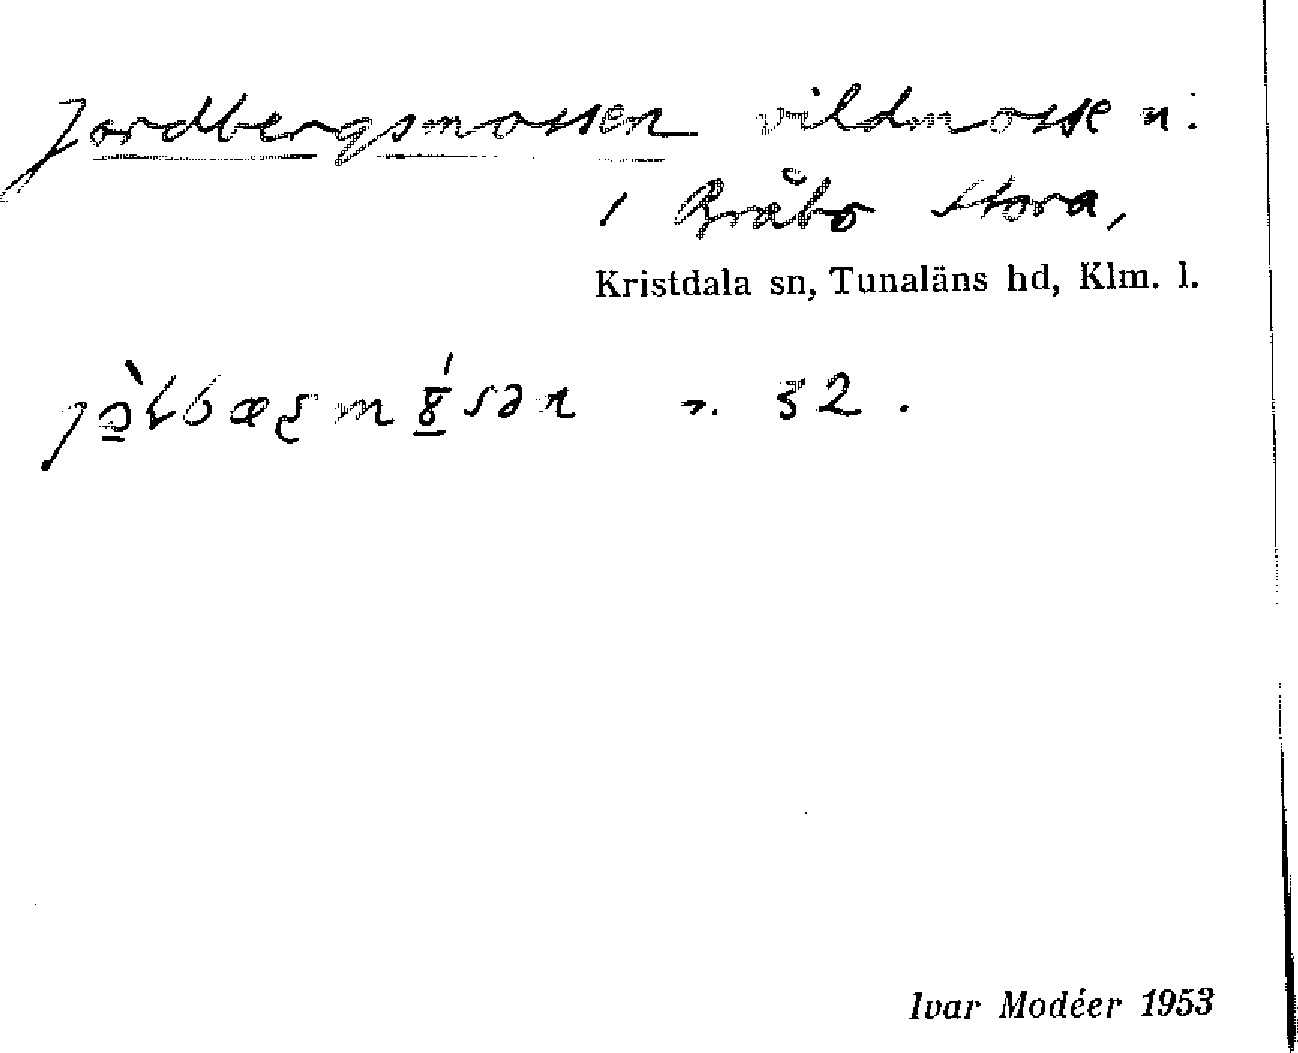 Jordbergsmossen vildmosse n:
1 Bråbo Stora,
Kristdala sn, Tunaläns hd, Klm. l.
32.
Ivar Modéer 1953